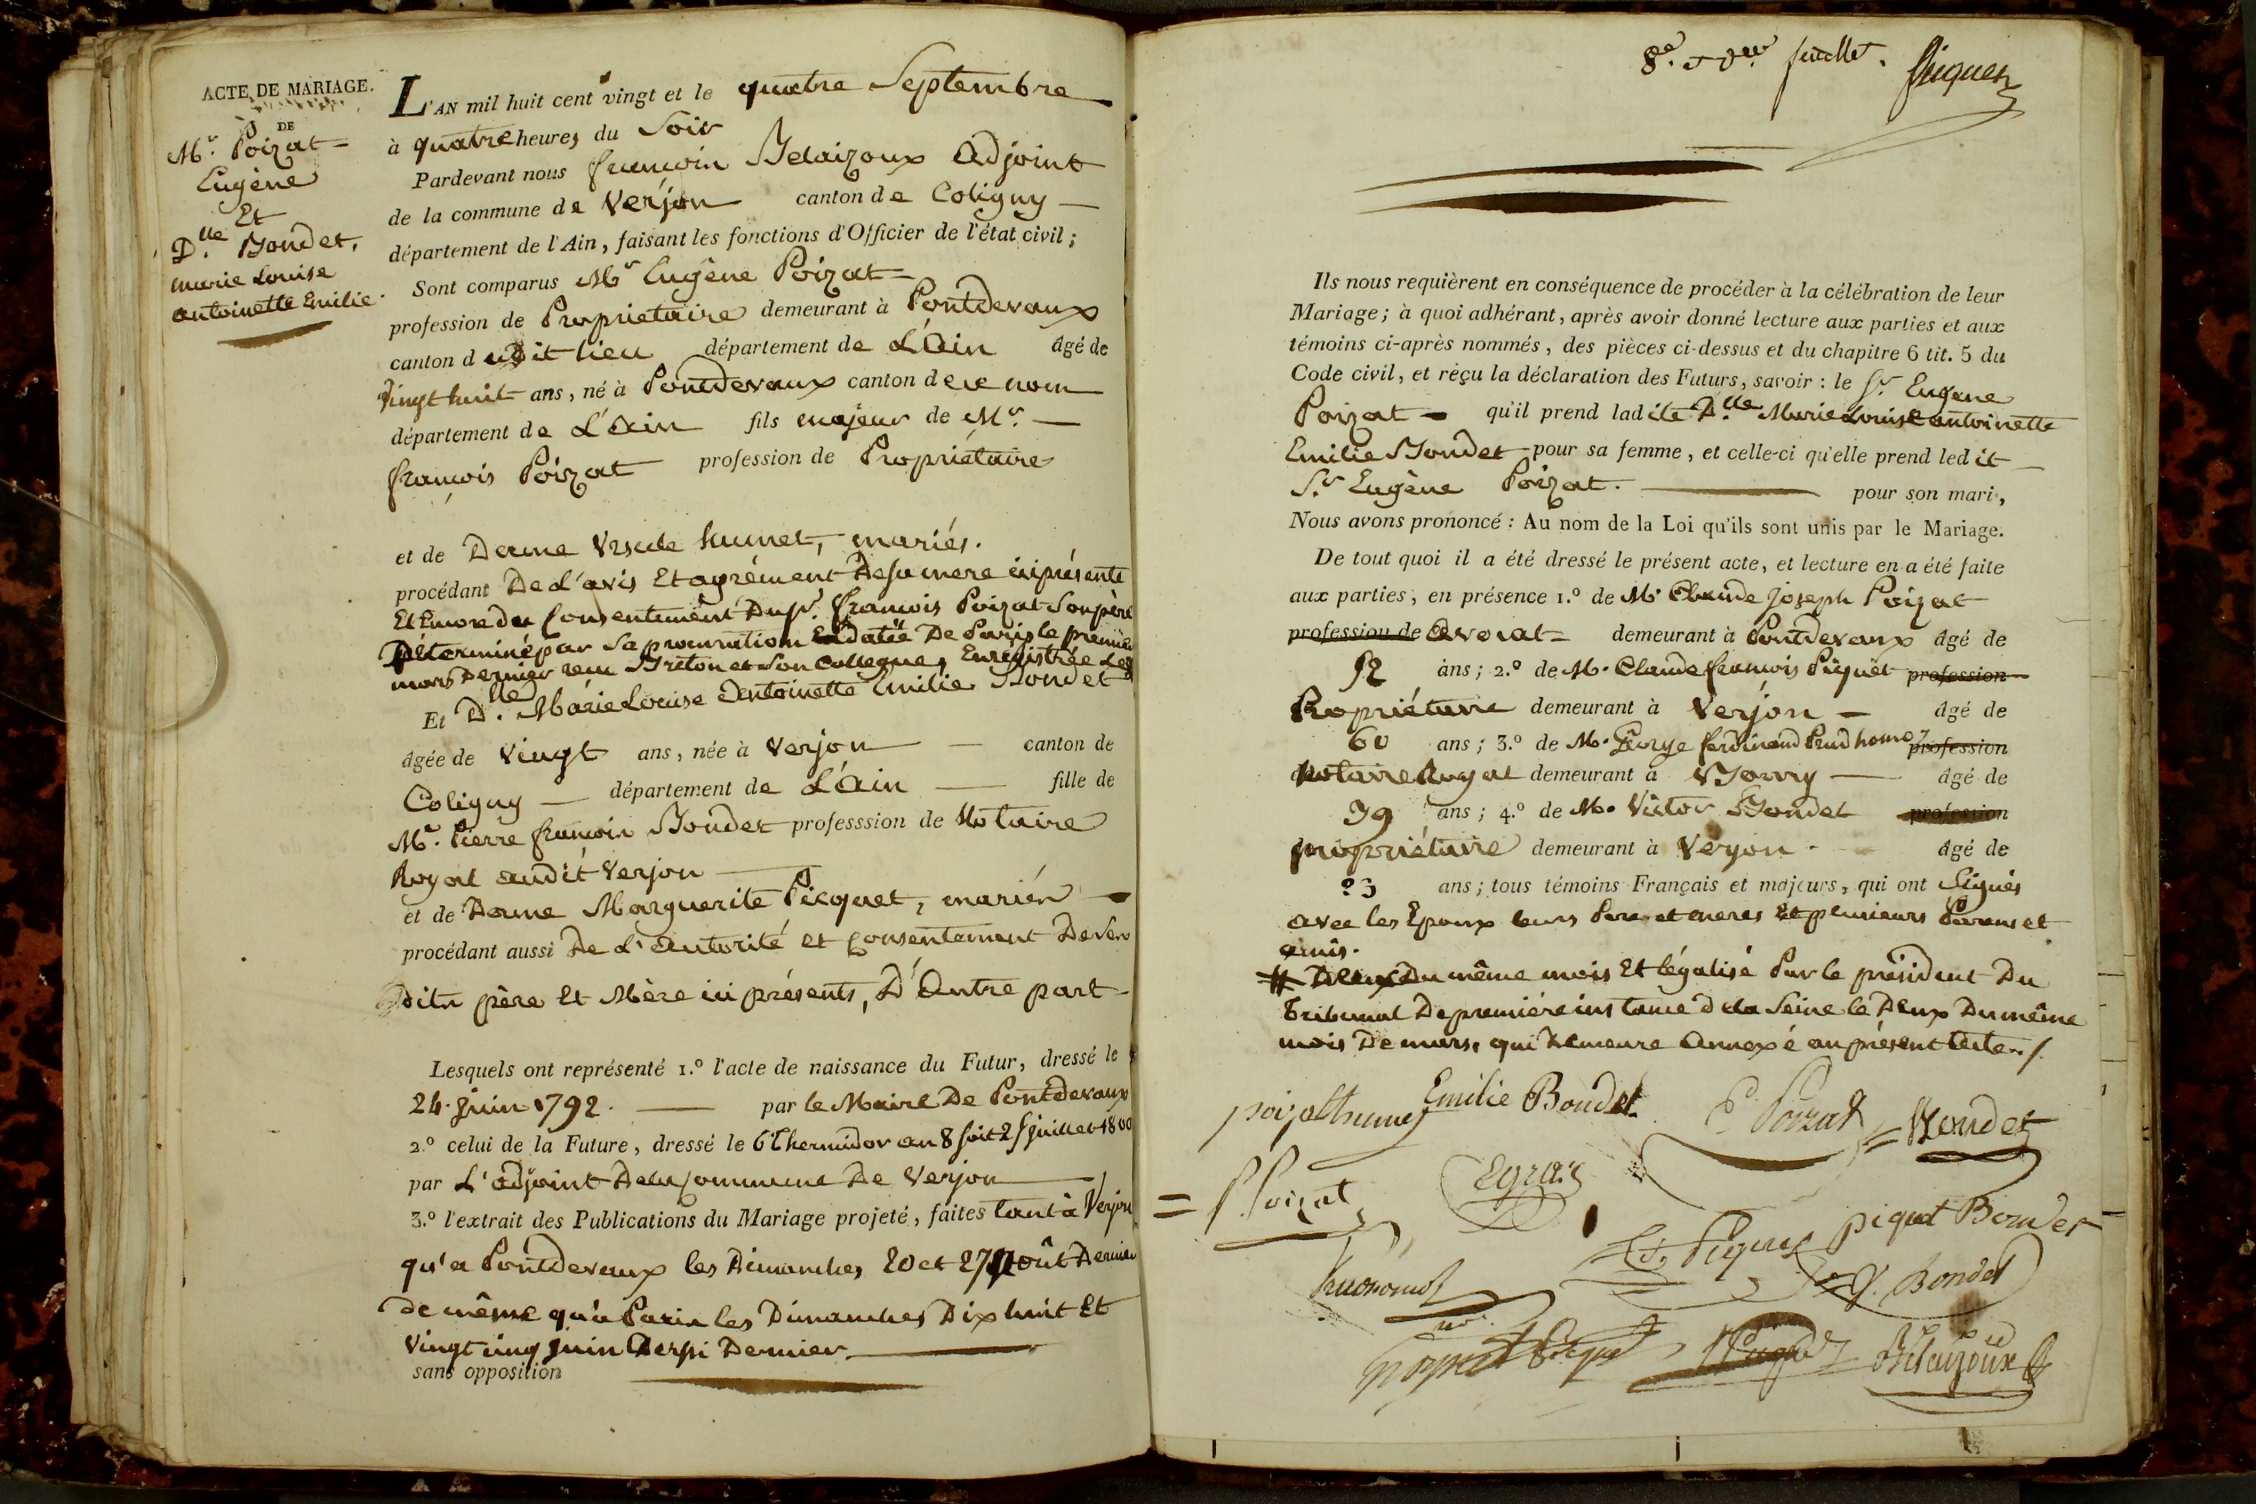 ACTE DE MARIAGE.
DE
Mr. Poizat
Eugène
Et
Dlle. Bondet,
marie Louise
antoinette Emilie.
L'AN mil huit cent vingt et le quatre Septembre
à quatre heures du Soir
Pardevant nous francois Belaizoux Adjoint
de la commune de Verjon canton de Coligny
département de l'Ain, faisant les fonctions d'Officier de l'état civil;
Sont comparus Mr Eugène Poizat
profession de Proprietaire demeurant à Pontdevaux
canton dudit lieu département de L'Ain âgé de
vingt huit ans, né à Pontdevaux canton de ce nom
département de L'Ain fils majeur de Mr.
françois Poizat profession de Propriétaire
et de Dame Ursule humet, mariés.
procédant De L'avis Et agrément De sa mere ici présente
Et Encore du Consentement Du sr. francois Poizat Son père
Déterminé par Sa procuration En Datée De Paris le premier
mars Dernier reçu Breton et Son Collegue, Enregistrée Le #
Et Dlle. Marie Louise Antoinette Emilie Bondet
âgée de Vingt ans, née à Verjon canton de
Coligny département de L'Ain fille de
Mr. Pierre francois Bondet professsion de Notaire
Royal audit Verjon
et de Dame Marguerite Picquet, mariés
procédant aussi De L'autorité et Consentement De Ses
Dits père Et Mère ici présents, D'Autre part
Lesquels ont représenté 1.º l'acte de naissance du Futur, dressé le
24. juin 1792. par le Maire De Pontdevaux
2.º celui de la Future, dressé le 6 Thermidor an 8 soit 25 juillet 1800
par L'adjoint De la Commune De Verjon
3.º l'extrait des Publications du Mariage projeté, faites tant à Verjon
qu'a Pontdevaux les Dimanches 20 et 27 Août Dernier
de même qu'a Paris les Dimanches Dix huit Et
vingt cinq juin Dernier
sans opposition
8e. feuillet. Piquet
Ils nous requièrent en conséquence de procéder à la célébration de leur
Mariage; à quoi adhérant, après avoir donné lecture aux parties et aux
témoins ci-après nommés, des pièces ci-dessus et du chapitre 6 tit. 5 du
Code civil, et reçu la déclaration des Futurs, savoir: le Sr. Eugene
Poizat qu'il prend ladite Dlle. Marie Louise antoinette
Emilie Bondet pour sa femme, et celle-ci qu'elle prend ledit
S.r Eugène Poizat. pour son mari,
Nous avons prononcé: Au nom de la Loi qu'ils sont unis par le Mariage.
De tout quoi il a été dressé le présent acte, et lecture en a été faite
aux parties, en présence 1.º de Mr Claude Joseph Poizat
profession de Avocat demeurant à Pontdevaux âgé de
52 ans; 2.º de M. Claude francois Piquet profession
Propriétaire demeurant à Verjon âgé de
60 ans; 3.º de M. George ferdinand Prudhome profession
Notaire Royal demeurant à âgé de
39 ans; 4.º de M. Victor Bondet profession
propriétaire demeurant à Verjon. âgé de
23 ans; tous témoins Français et majeurs, qui ont Signés
avec les Epoux leurs Pere et meres Et plusieurs Parens et
amis.
# Deux Du même mois Et légalisé Par le président Du
Tribunal De premiére instance de la Seine le Deux Du même
mois De mars, qui Demeure Annexé au présent acte./.
poizat humet Emilie Bondet E Poizat Bondet
P. Poizat Egraz
Ls. Piquet piquet Bondet
Prudhomme V. Bondet
Piquet Belaizoux